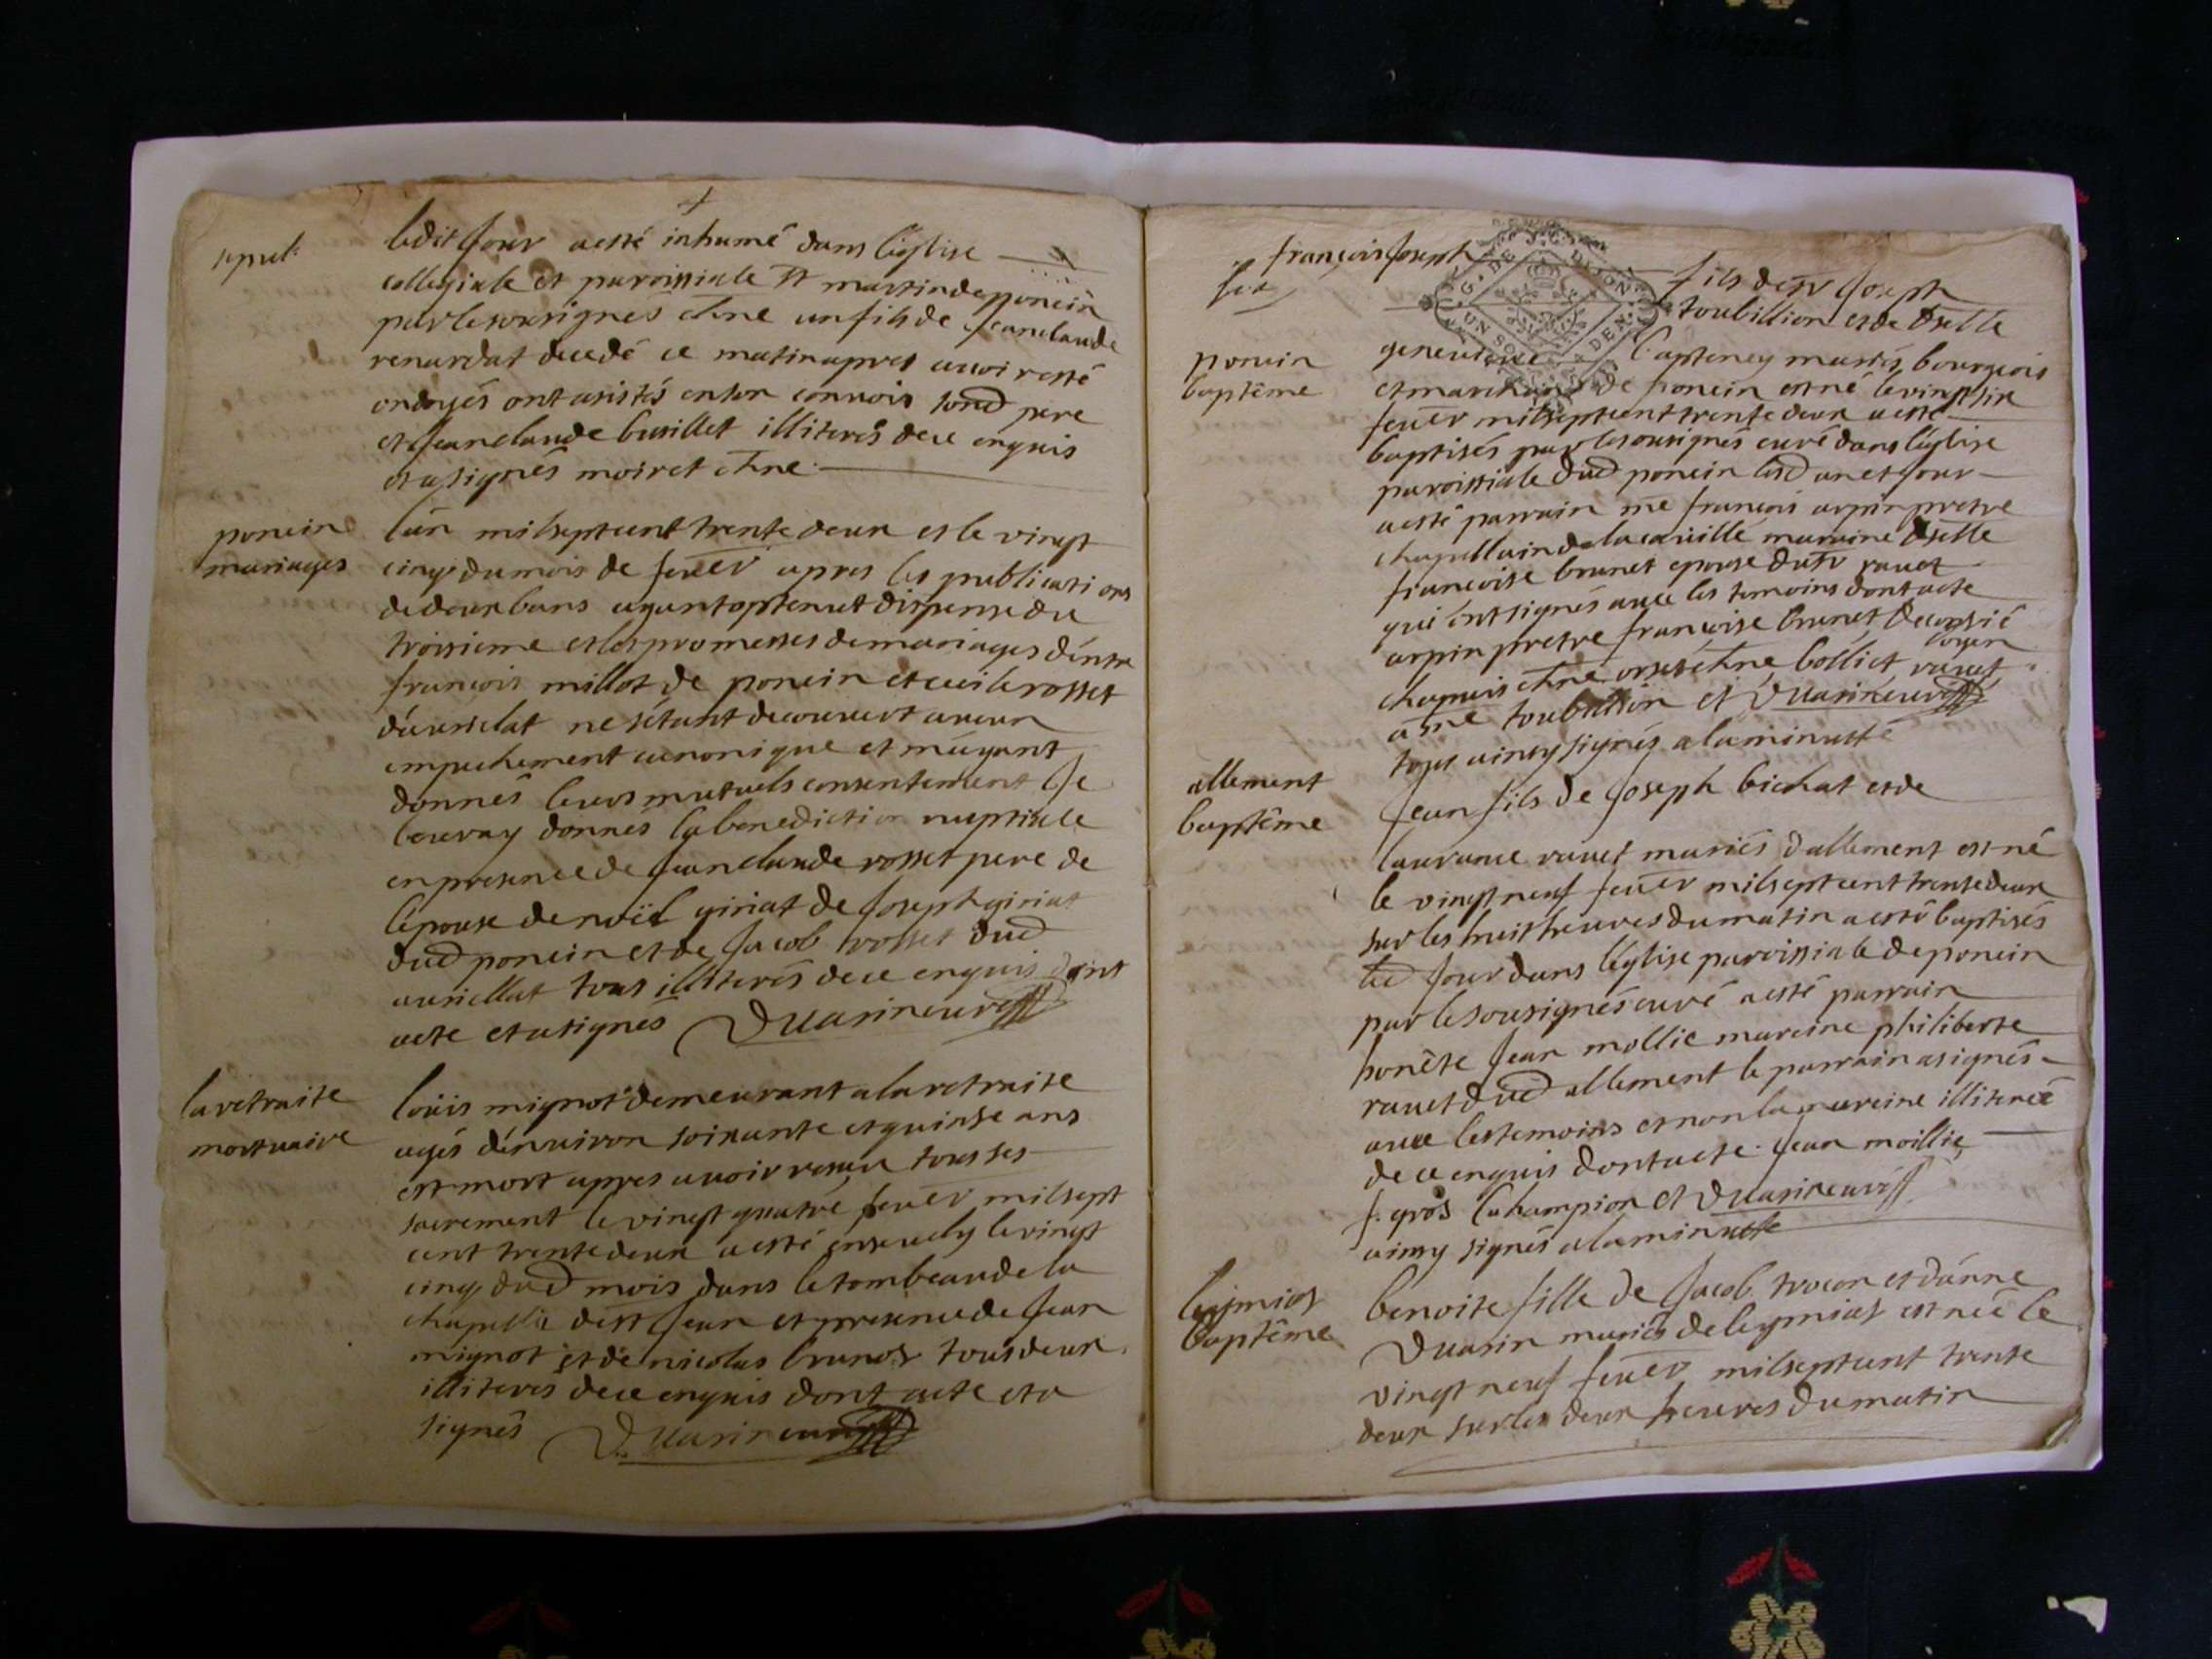 sepul:
ledit Jour a esté inhumé dans l'église
collegiale et paroissiale st martin de poncin
par le sousignés chne un fils de Jeanclaude
renardat decedé ce matin apres avoir esté
ondoyés ont asistés en son convois sond pere
et Jeanclaude busillet illiterés de ce enquis
et a signés moiret chne
poncin
mariages
l'an mil sept cent trente deux et le vingt
cinq du mois de feuer apres les publications
de deux bans ayant optenu et dispense du
troisieme et les promesses de mariages d'entre
françois millot de poncin et cecile rosset
d'avrielat ne s'etant decouvert aucun
empechement canonique et m'ayant
donnés leurs mutuels consentement Je
leur ay donnés la benediction nuptiale
en presence de Jeanclaude rosset pere de
l'epouse de noël giriat de Joseph giriat
dud poncin et de Jacob rosset dud
auriellat tous illiterés de ce enquis dont
acte et a signés D uarin curé
la retraite
mortuaire
loüis mignot demeurant a la retraite
agés d'enuiron soixante et quinse ans
est mort apres auoir ressu tous ses
sacrement le vingt quatre feuer mil sept
cent trente deux a esté enseuely le vingt
cinq dud mois dans le tombeau de la
chapelle de st Jean et presence de Jean
mignot et de nicolas brunos tous deux
illiterés de ce enquis dont acte et a
signés D. uarin curé
françois Joseph
fils de sr Joseph
toubillion et de dselle
poncin
baptême
geneuieue Captenoy mariés bourgeois
et marchand de poncin est né le vingt six
feuer mil sept cent trente deux a esté
baptisés par le sousignés curé dans l'église
paroissiale dud poncin lesd an et Jour
a esté parrain me françois arpin pretre
chapellain de la maraine dselle
françoise brunet epouse du sr rauet
qui ont signés auec les temoins dont acte
arpin pretre françoise brunet
chapuis chne orset chne bolliet rauet
toubillion et D uarin curé
tous ainsy signés a la minutte
allement
baptême
Jean fils de Joseph bichat et de
laurance rauet mariés d'allement est né
le vingt neuf feuer mil sept cent trente deux
sur les huit heures du matin a esté baptisés
led Jour dans l'église paroissiale de poncin
par le sousignés curé a esté parrain
honête Jean mollie mareine philiberte
rauet dud allement le parrain a signés
auec les temoins et non la mareine illiterée
de ce enquis dont acte. Jean moillie
f. gros Champion et D uarin curé
ainsy signés a la minutte
leymiat
baptême
benoite fille de Jacob trocon et d'anne
D uarin mariés de leymiat est née le
vingt neuf feuer mil sept cent trente
deux sur les deux heures du matin